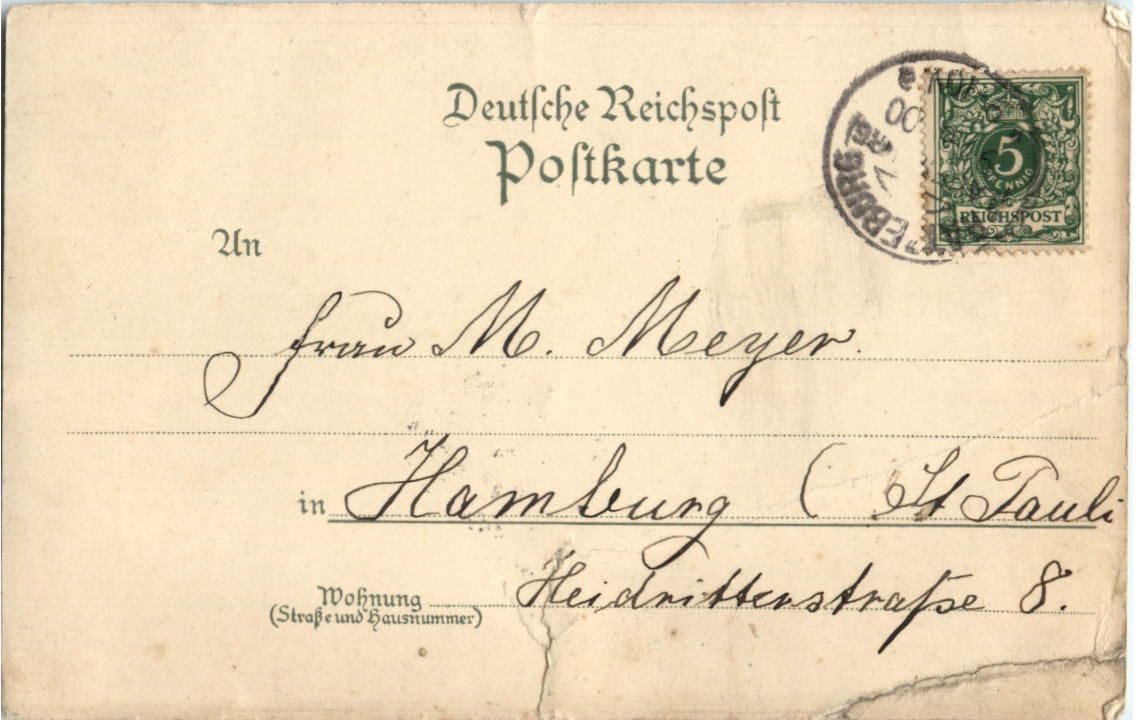 Deutsche Reichspost
Postkarte
5
PFENNIG
REICHSPOST
An
Frau M. Meyer.
in Hamburg ( St Pauli
Wohnung
(Straße und Hausnummer)
Heidritterstraße 8.